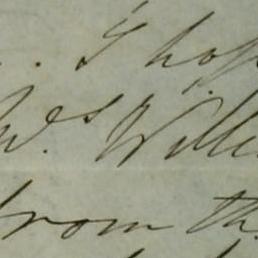 . I hop
W.s Willi
from th